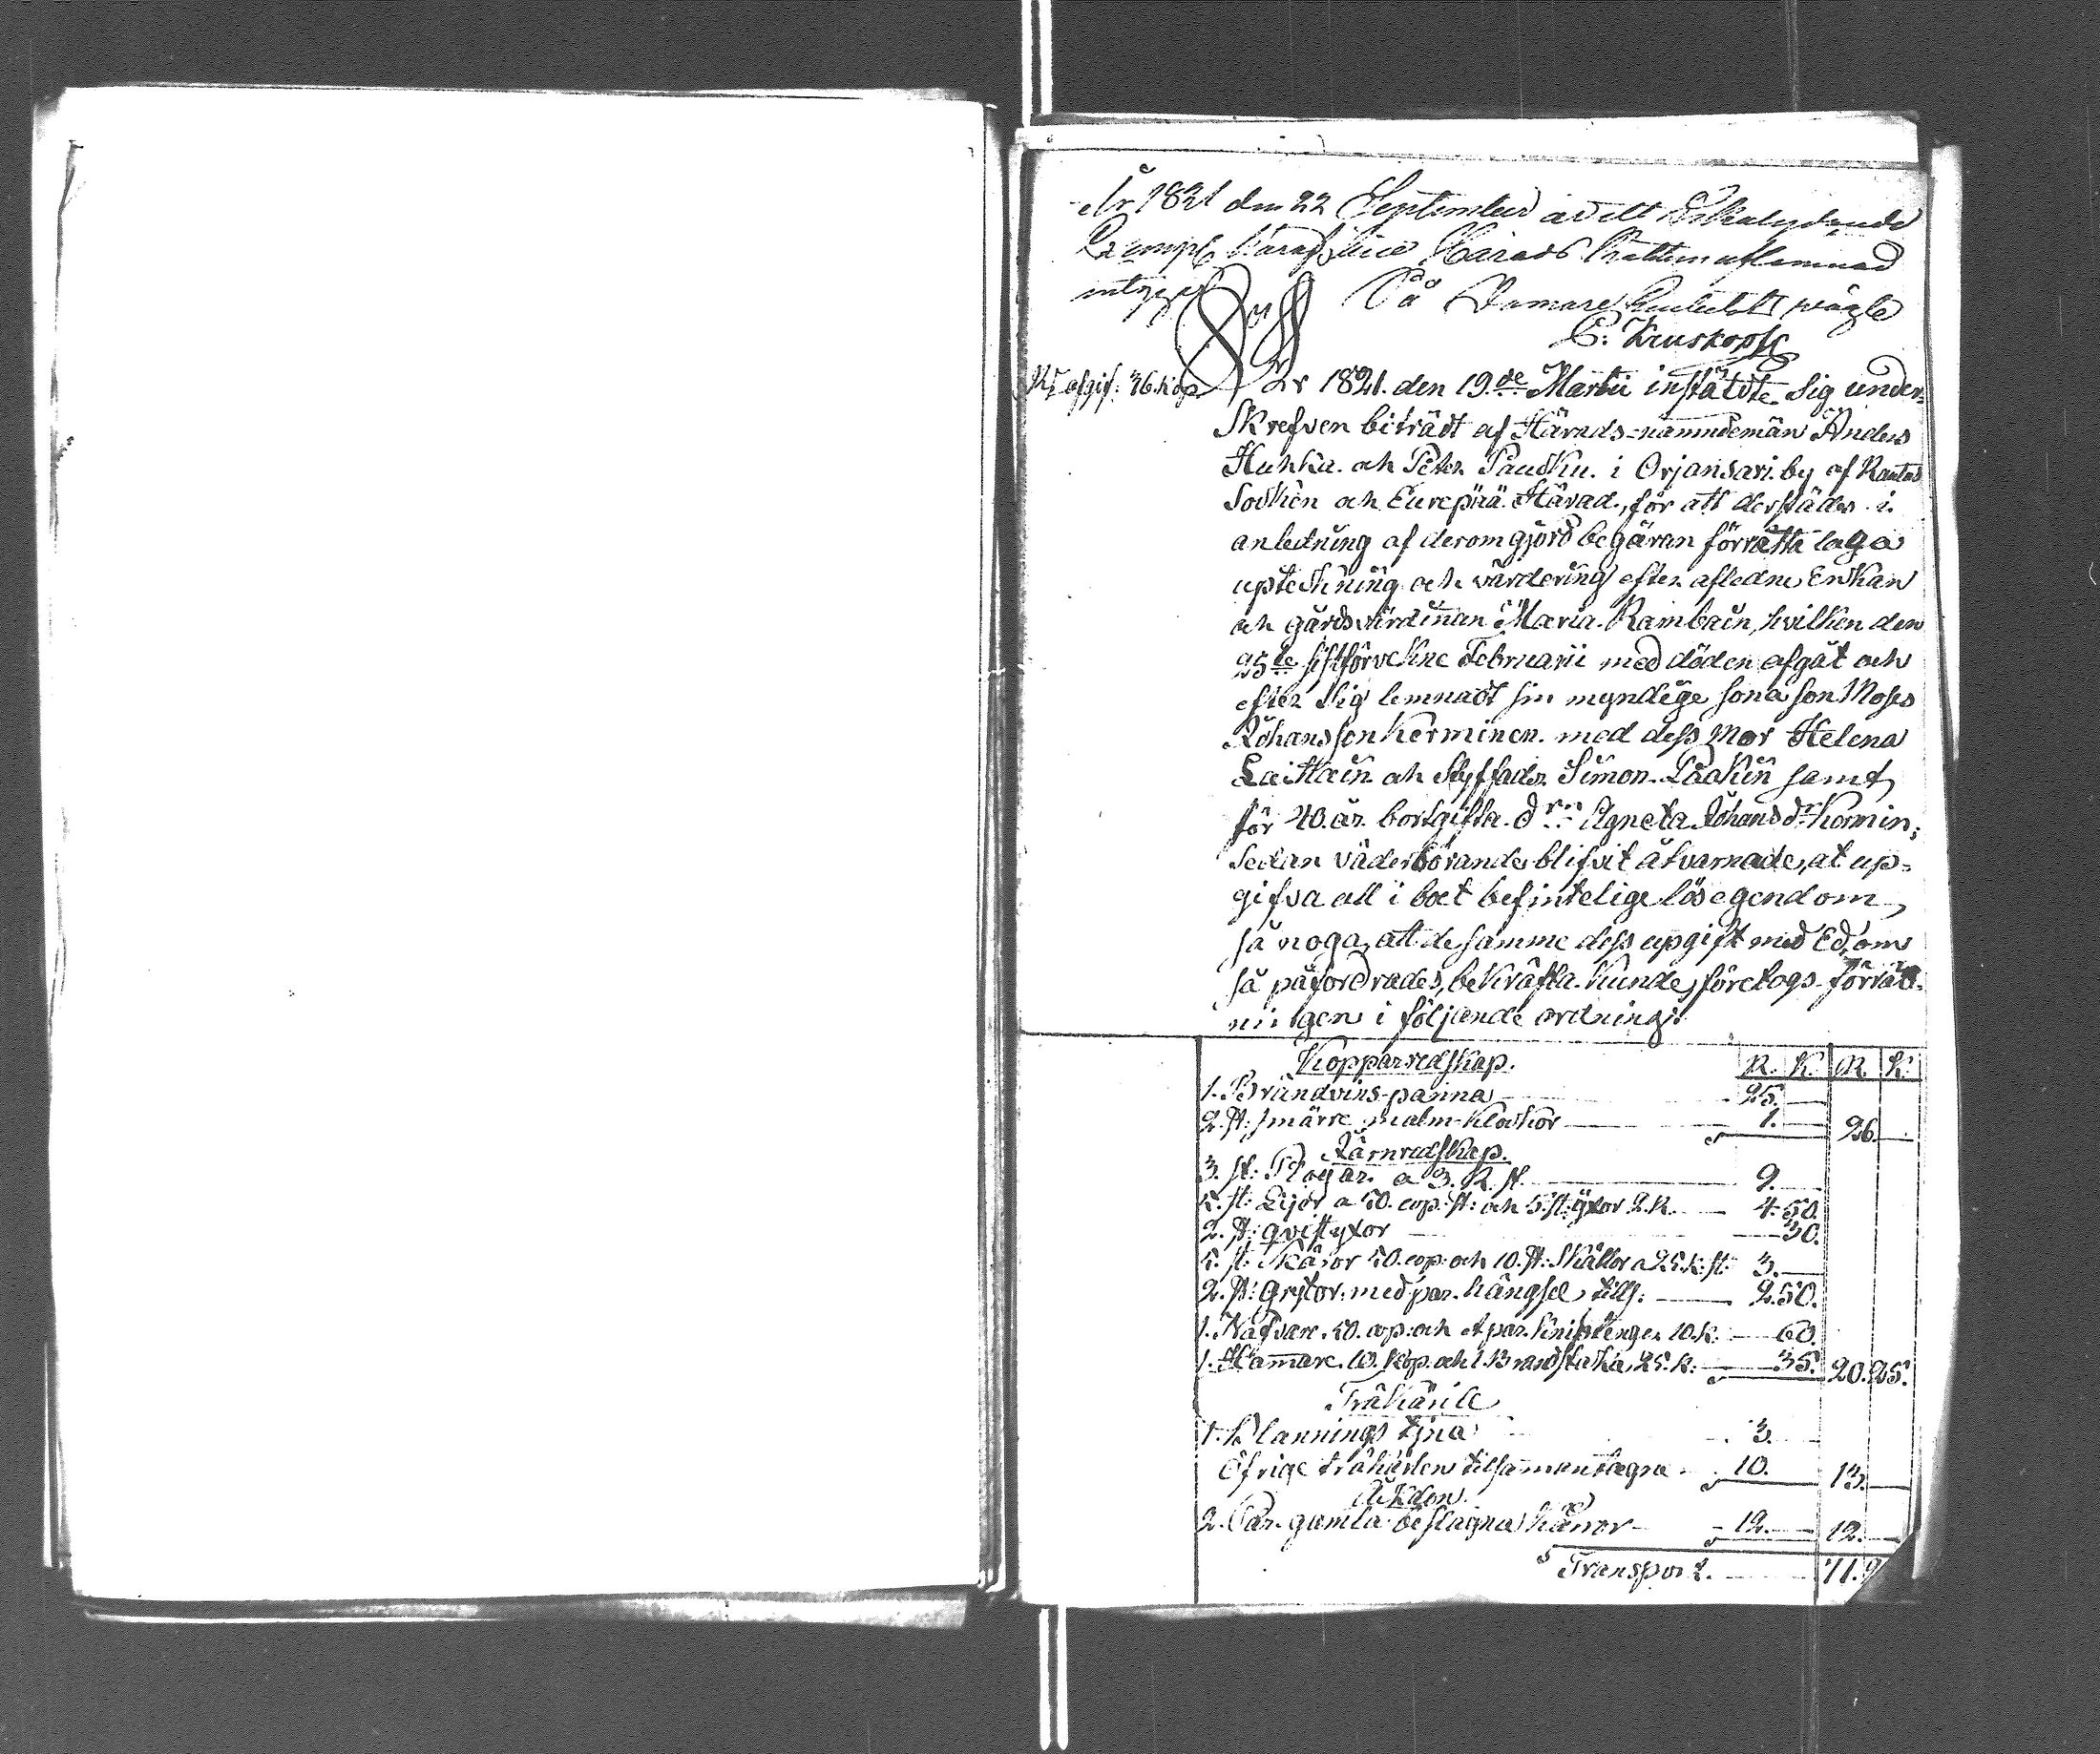 År 1821 den 22 September är ett lika lydande
Exempl Härads Rätten aflemnad
intygar
På Domare Embetets vägn
C. Kruskopf
afgif: 36. kop År 1821. den 19.de Martii instälde sig under-
Skrefven biträdt af Härads-nämndemän Anders
Huhka. och Peter Paudku. i Orjansari. by af Rautus
Sockn och Eurepää Härad, för att derstädes i
anledning af derom gjord begäran förrätta laga
uptekning och värdering efter afledne Enkan
och gårdsvärdinan Maria. Rambain, hvilken den
25te sistförvekne Februarii med döden afgåt och
efter sig lemnadt sin myndige sona son Moses
Johansson Kerminen. med dess Mor Helena
Laittain och Styffader Simon. Paakin samt
för 40. år. bortgifta. dr Agneta Johansdr Kermin;
Sedan väderbörande blifvit åtvarnade, at up-
gifva all i boet befintelige lösegendom,
så noga, att de samme dess upgift med Ed, om
så påfordrades, bekräfta kunde, företogs förrätt-
ningen i följande ordning:
Kopparredskap. R. K. R. K.
1. Brändvins-panna 25.
2. st: smärre malm-klockor 1. 26.
Järnredskap.
3. st: Plogar. a 3. R. st. 9.
5. st: Lijor a 50. cop: st: och 5. st: yxor 2. R. 4. 50.
2. st: qvistyxor 30.
5. st: Skäror 50. cop: och 10. st: Skällor a 25. k: st: 3.
2. st: grytor. med par. hängsel, tills: 2. 50.
1. Nafvare. 50. cop: och et par. kniptenger 10. k. 60.
1. Hammare. 10. kop. och 1. Brandstaka, 25. k: 35. 20. 25.
Träkärile
1. Blannings tjna 3.
Öfrige träkärlen tilsammantagne 10. 13.
Åkdon.
2. Par. gamla beslagna kärror 12. 12.
Transport. 71.